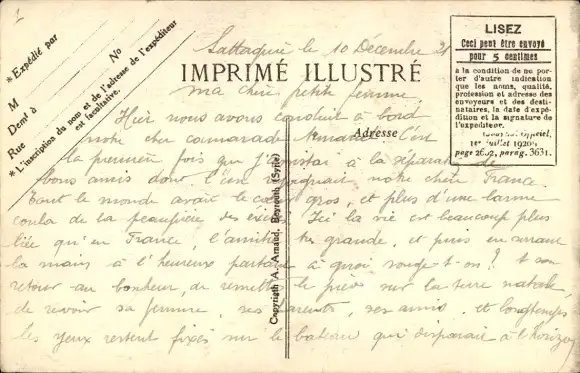 1
* Expédié par
No
M
Demt à
Rue
* L'inscription du nom et de l'adresse de l'expéditeur
est facultative.
IMPRIMÉ ILLUSTRÉ
Adresse
LISEZ
Ceci peut être envoyé
pour 5 centimes
à la condition de ne por-
ter d'autre indication
que les noms, qualité,
profession et adresse des
envoyeurs et des desti-
nataires, la date d'expé-
dition et la signature de
l'expéditeur.
Journal Officiel,
1er Juillet 1920
page 2692, parag. 3631.
Copyrigth A. Arnaud, Beyrouth (Syrie)
le 10 Décembre
ma chère petite femme
Hier nous avons conduit à bord
notre cher camarade Armand C'est
la première fois que j'assistai à la séparation de
bons amis dont l'un rejoignait notre chère France
Tout le monde avait le cœur gros, et plus d'une larme
coula de la paupière des exilés Ici la vie est beaucoup plus
liée qu'en France, l'amitié très grande, et puis en serrant
la main à l'heureux partant à quoi songe-t-on? à son
retour au bonheur de remettre le pied sur la terre natale
de revoir sa femme, ses parents, ses amis, et longtemps
les yeux restent fixés sur le bateau qui disparait à l'horizon